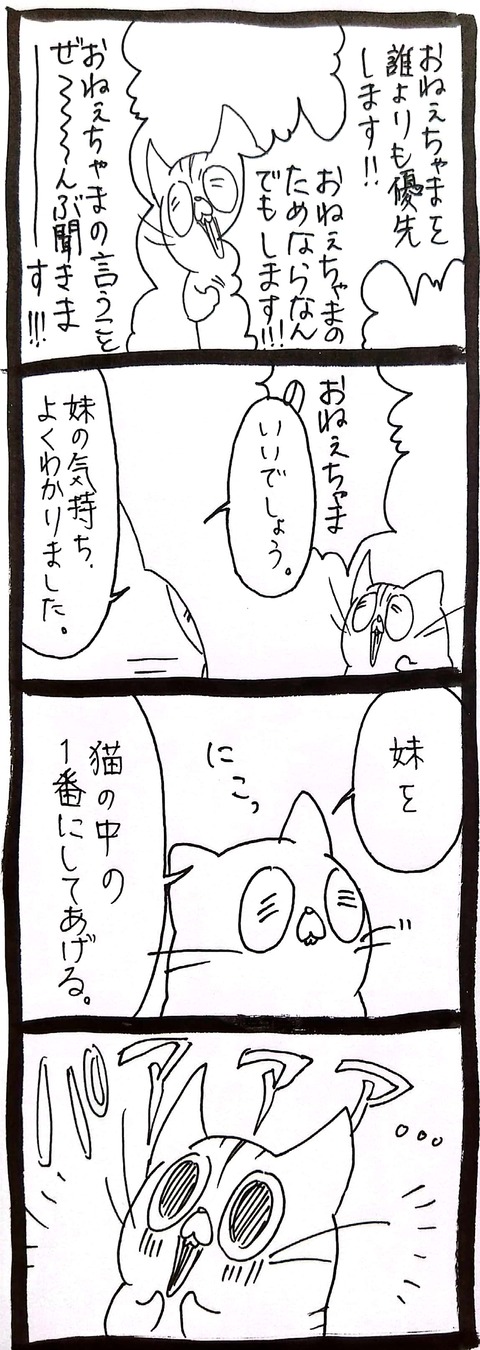 おねぇちゃまを
誰よりも優先
します!!
おねぇちゃまの
ためならなん
でもします!!!
おねぇちゃまの言うこと
ぜ〜〜〜んぶ聞きま
ーーーす!!!
おねぇちゃま
いいでしょう。
妹の気持ち、
よくわかりました。
妹を
にこっ
猫の中の
1番にしてあげる。
パアアア…